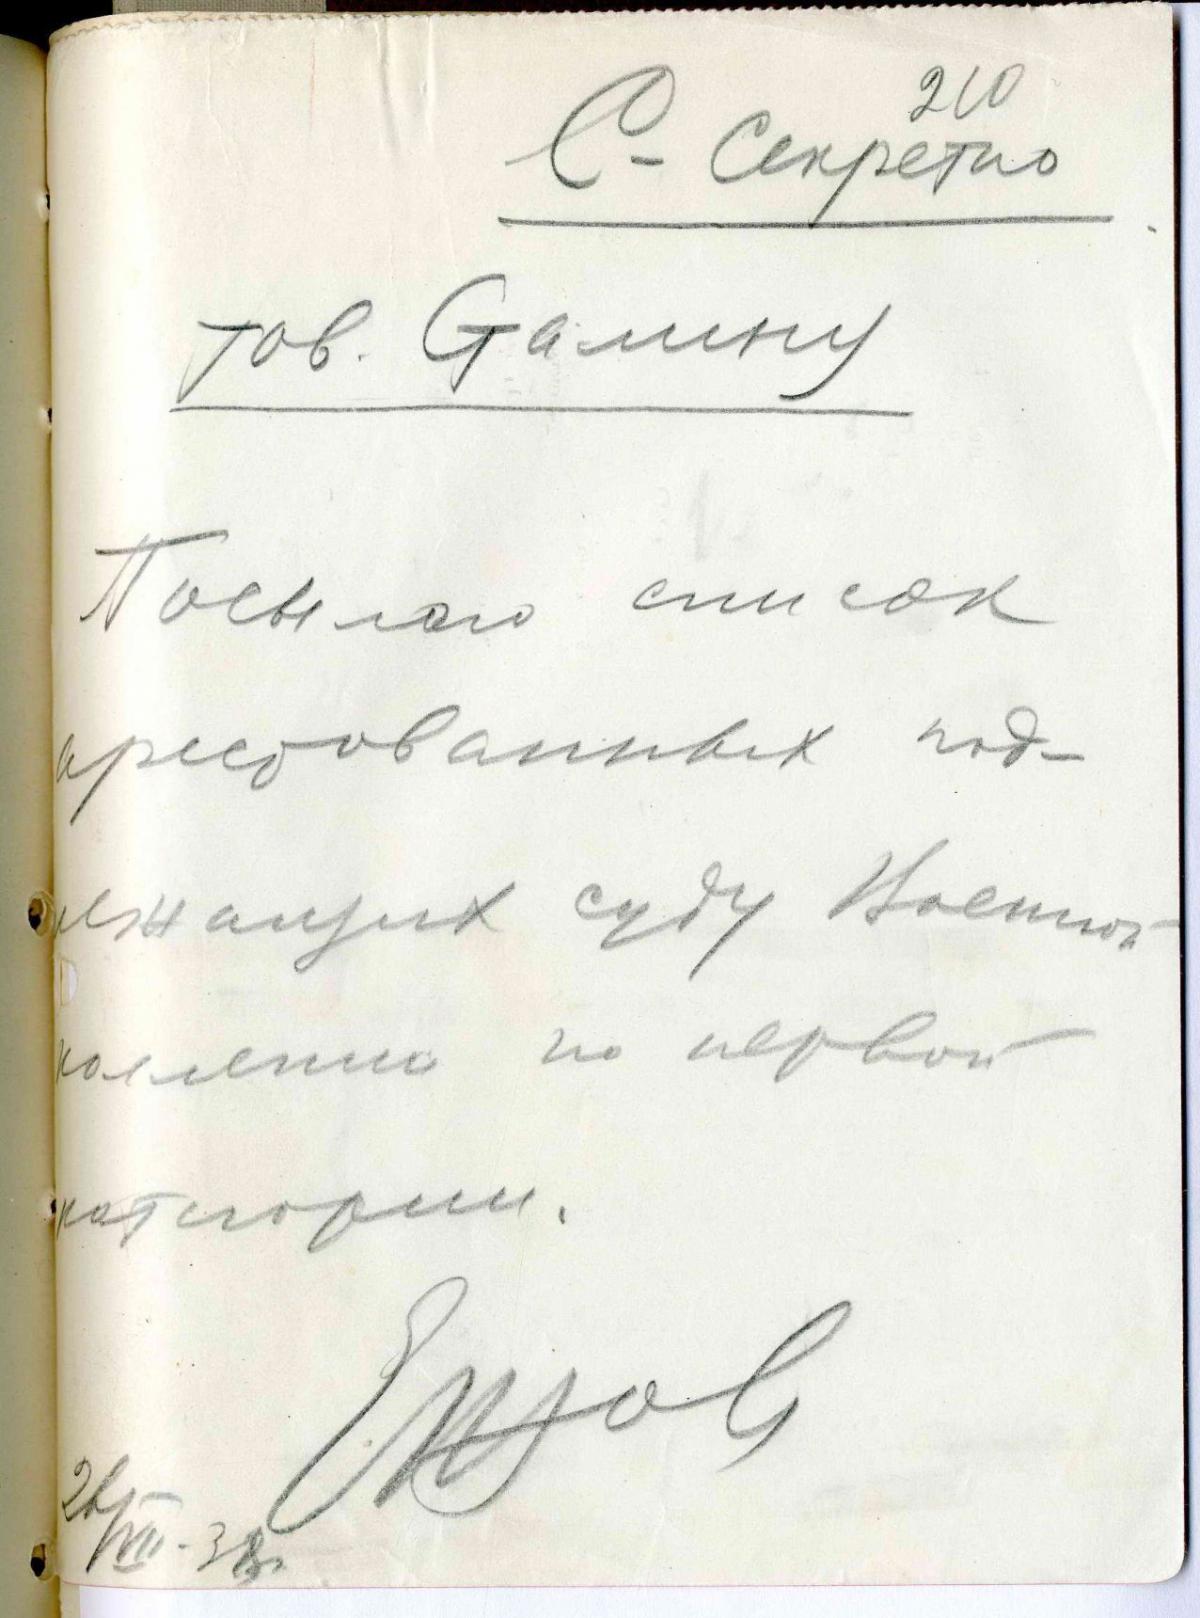 210
С-Секретно
тов. Сталину
Посылаю список
арестованных под-
лежащих суду Военной
коллегии по первой
категории.
Ежов
26/VII-38г.